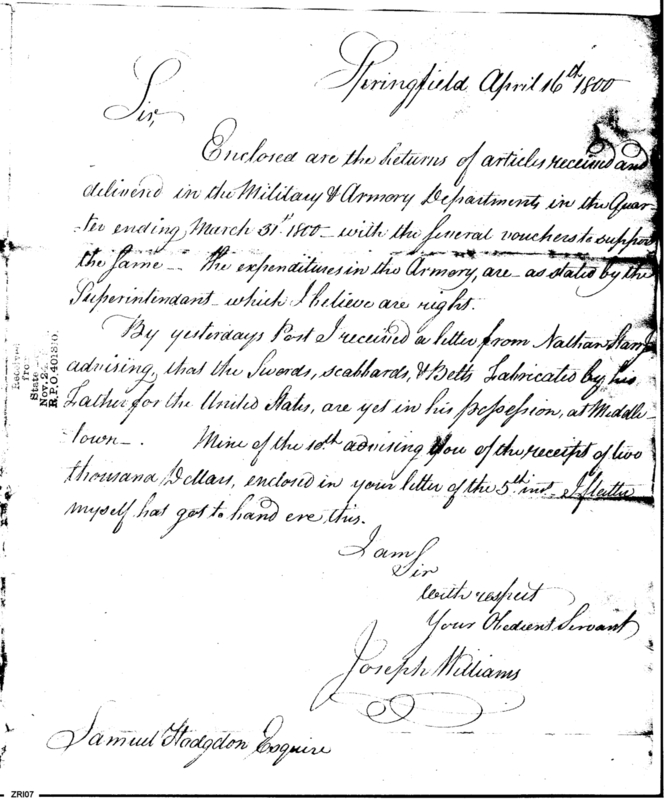 Springfield April 16th 1800
Sir,
Enclosed are the Returns of articles received and
delivered in the Military & Armory Departments, in the Quar
-ter ending March 31st 1800 - with the several vouchers to support
the same - the expenditures in the Armory, are - as stated by the
Superintendant - which I believe are right.
By yesterdays Post I received a letter from Nathan Starr Jr
advising, that the Swords, scabbards, & Belts fabricated by his
Father for the United States, are yet in his possession, at Middle-
town -. Mine of the 10th advising you of the receipt of two
thousand Dollars, enclosed in your letter of the 5th inst. I flatter
myself has got to hand ere this.
I am
Sir
with respect
Your Obedient Servant
Joseph Williams
Samuel Hodgdon Esquire
Received
fro
State
Nov. 2
R.P.O. 40
ZRI07